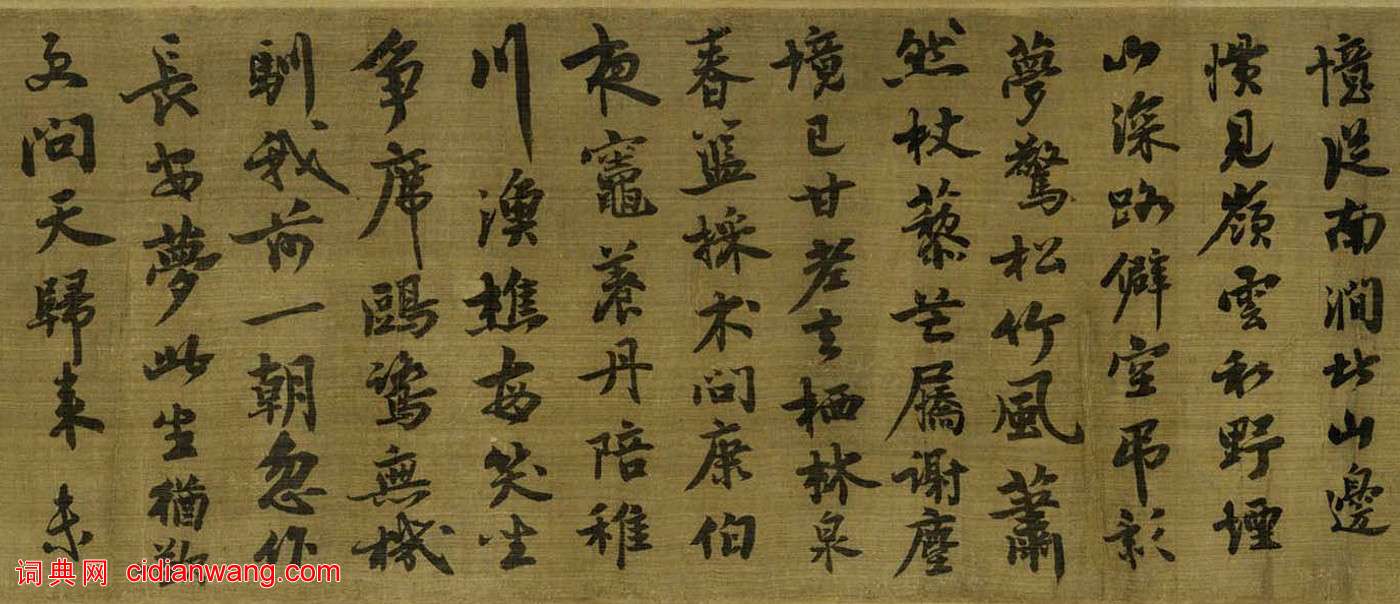 憶從南澗北山邊
慣見嶺雲和野煙
山深路僻空吊影
夢驚松竹風蕭
然杖藜芒屩謝塵
境已甘老去栖林泉
春籃採朮問康伯
夜竈養丹陪稚
川漁樵每笑坐
爭席鷗鷺無機
馴我前一朝忽作
長安夢此生猶欲
更問天歸來未
词典网 cidianwang.com